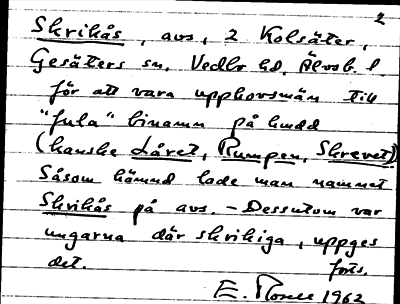 2
Skrikås, avs, 2 Kolsäter,
Gesäters sn, Vedbo hd, Älvsb. l
för att vara upphovsmän till
"fula" binamn på hudd
(kanske Låret, Rumpen, Skrevet)
Såsom hämnd lade man namnet
Skrikås på avs. - Dessutom var
ungarna där skrikiga, uppges
det. forts.
E. 1962